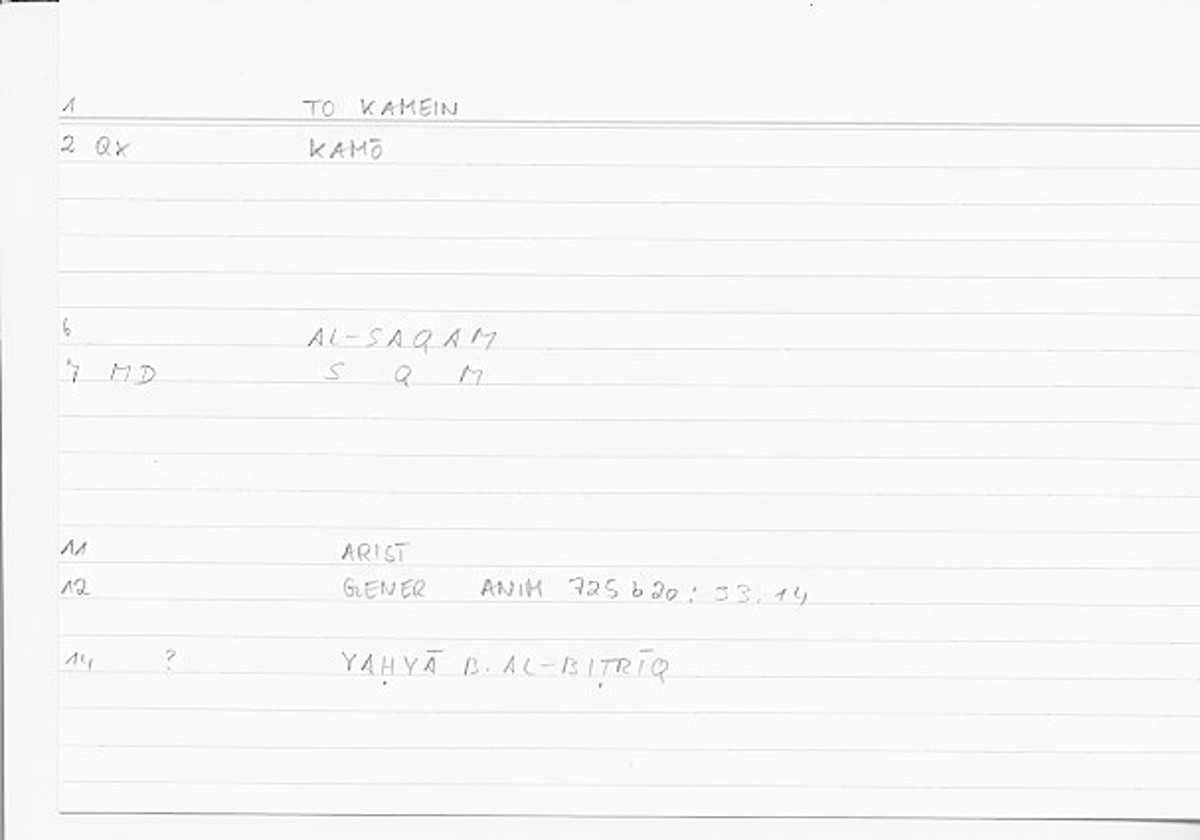 1 TO KAMEIN
2 QX KAMŌ
6 AL-SAQAM
7 MD S Q M
11 ARIST
12 GENER ANIM 725 b 20 : 53.14
14 ? YAḤYĀ B. AL-BIṬRĪQ